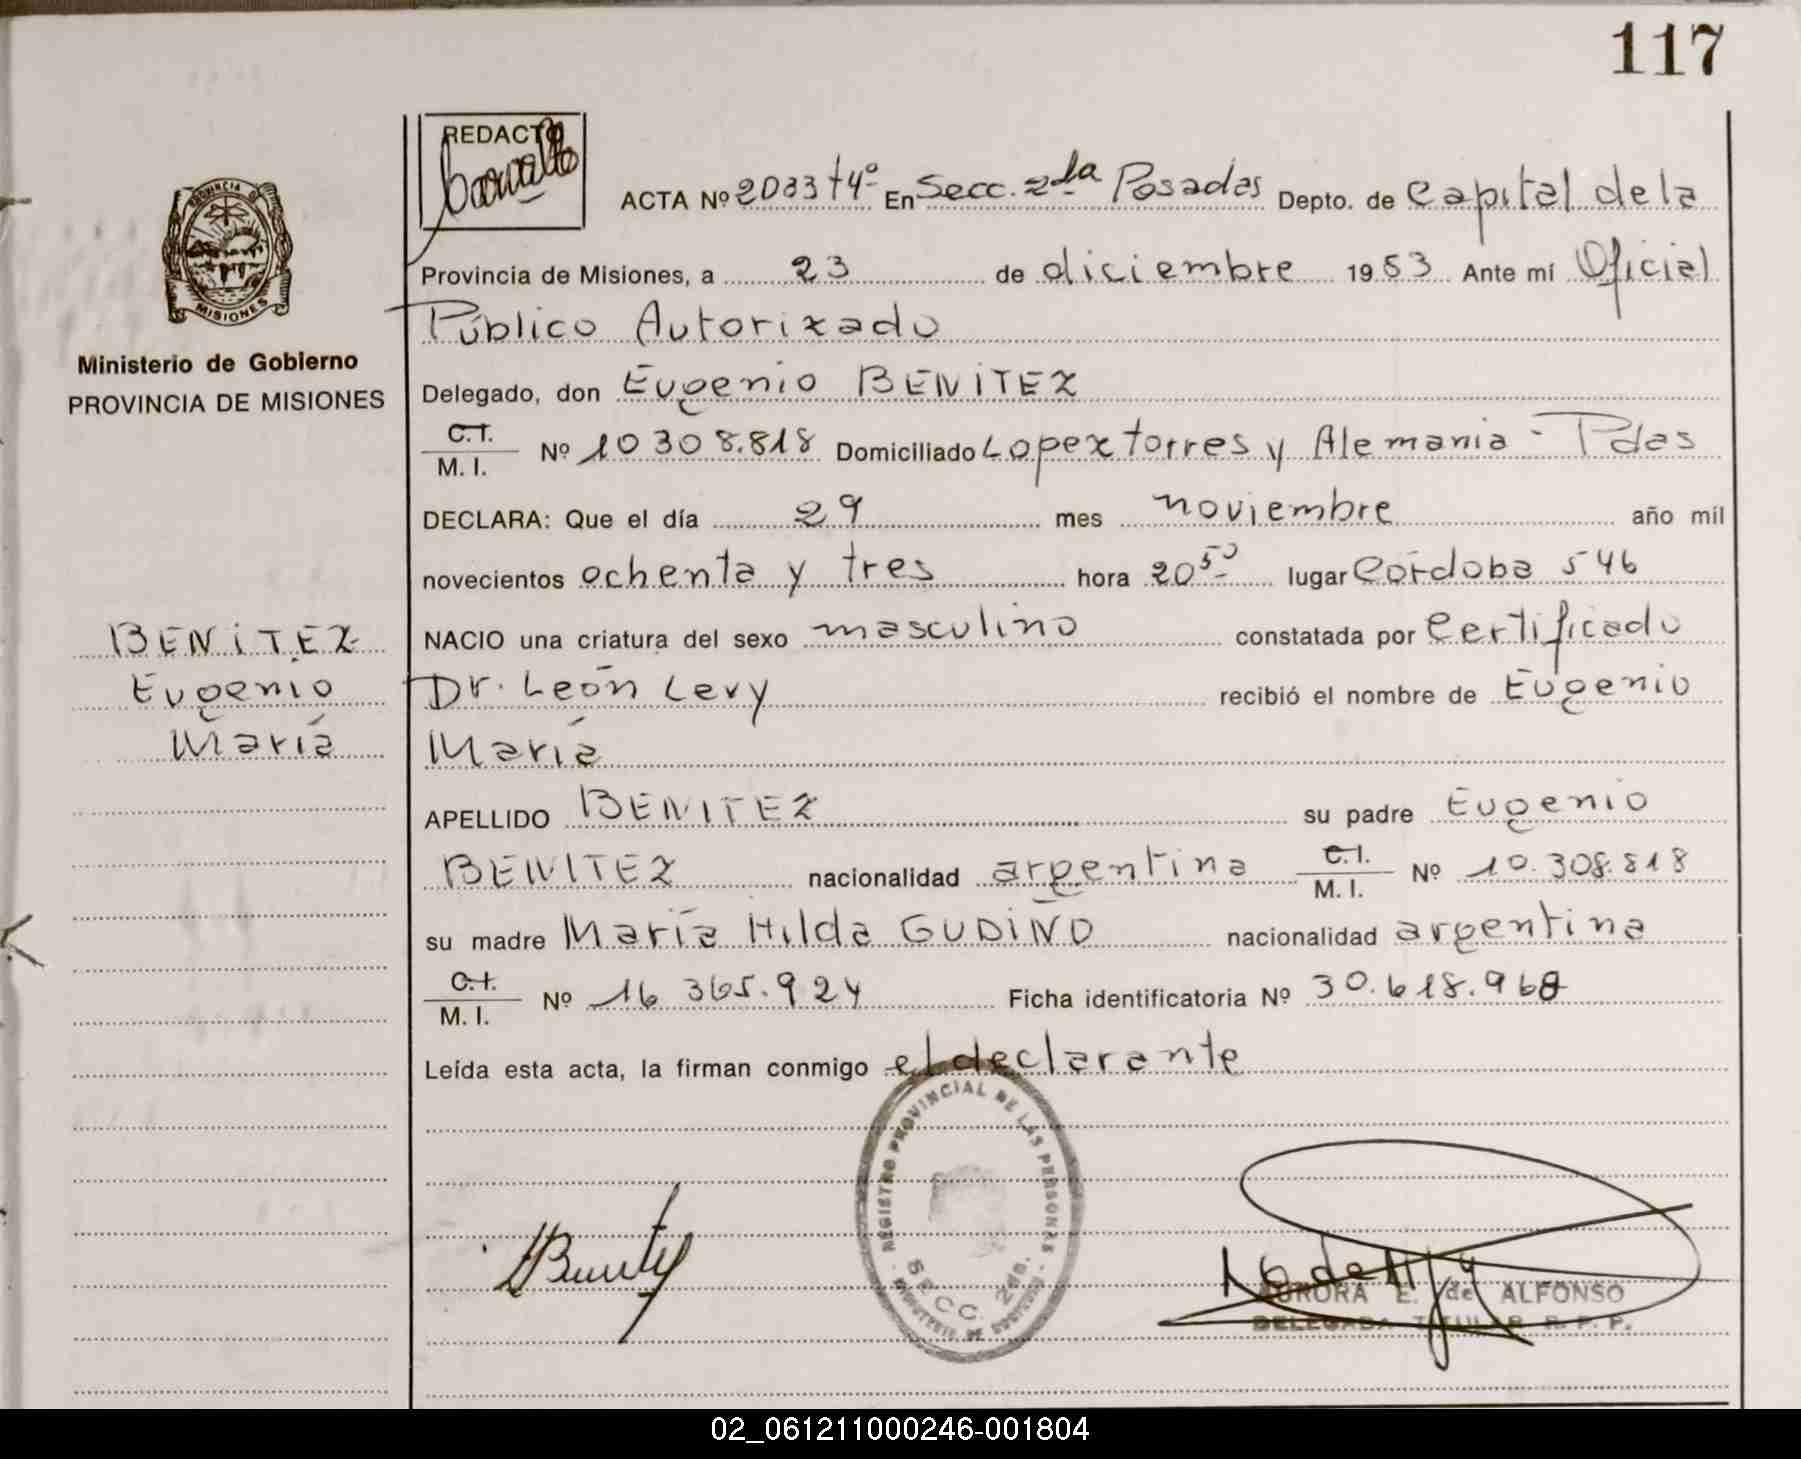 117
REDACTO
ACTA Nº 2033 t4º En Secc. 2da Posadas Depto. de Capital de la
Provincia de Misiones, a 23 de diciembre 1983 Ante mí Oficial
Público Autorizado
PROVINCIA DE MISIONES
Ministerio de Gobierno
PROVINCIA DE MISIONES
Delegado, don Eugenio BENITEZ
C.I. M. I. Nº 10 308.818 Domiciliado Lopez torres y Alemania - Pdas
DECLARA: Que el día 29 mes noviembre año mil
novecientos ochenta y tres hora 20 50 lugar Córdoba 546
BENITEZ
Eugenio
María
NACIO una criatura del sexo masculino constatada por Certificado
Dr. León Levy recibió el nombre de Eugenio
María
APELLIDO BENITEZ su padre Eugenio
BENITEZ nacionalidad argentina C.I. M. I. Nº 10.308.818
su madre María Hilda GUDIÑO nacionalidad argentina
C.I. M. I. Nº 16 365.924 Ficha identificatoria Nº 30.618.968
Leída esta acta, la firman conmigo el declarante
REGISTRO PROVINCIAL DE LAS PERSONAS
SECC. 2da.
AURORA E. de ALFONSO
DELEGADA TITULAR R. P. P.
02_061211000246-001804